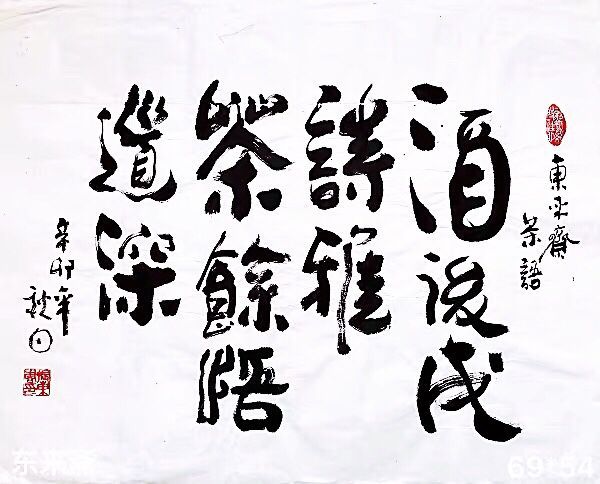 東來齋
茶語
酒後成
詩雅
茶餘悟
道深
辛卯年
东来斋
69*54